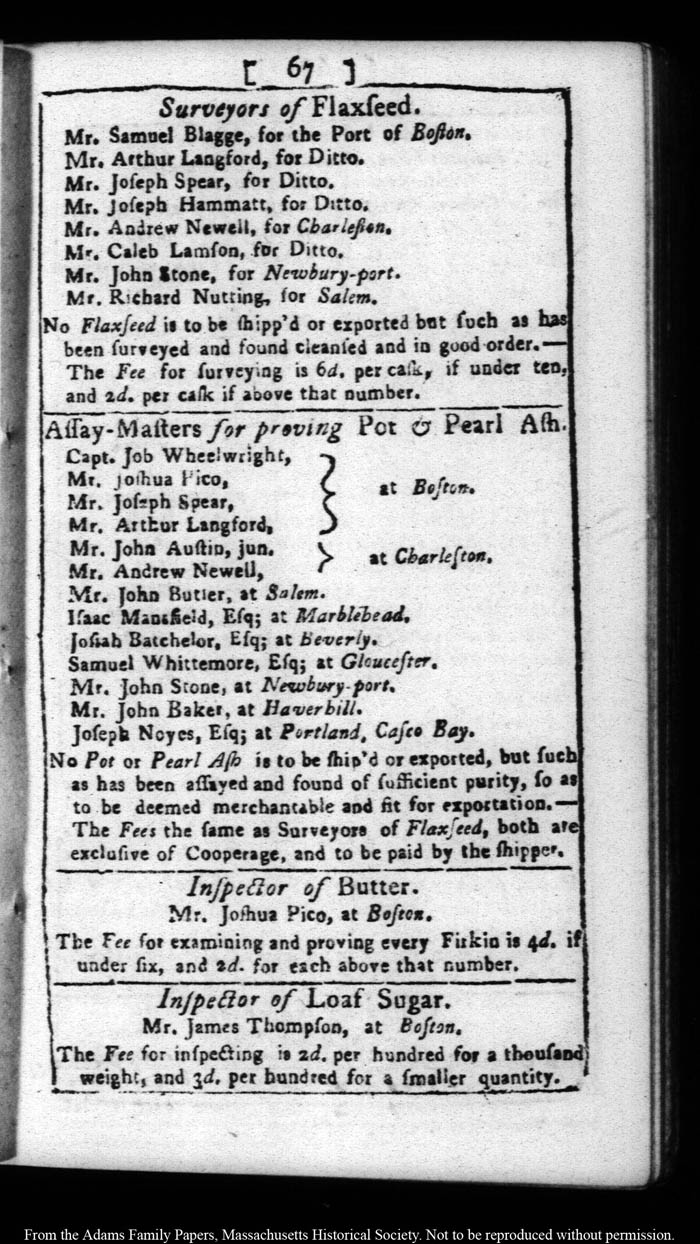 [ 67 ]
Surveyors of Flaxſeed.
Mr. Samuel Blagge, for the Port of Boſton.
Mr. Arthur Langford, for Ditto.
Mr. Joſeph Spear, for Ditto.
Mr. Joſeph Hammatt, for Ditto.
Mr. Andrew Newell, for Charleſton.
Mr. Caleb Lamſon, for Ditto.
Mr. John Stone, for Newbury-port.
Mr. Richard Nutting, for Salem.
No Flaxſeed is to be ſhipp'd or exported but ſuch as has
been ſurveyed and found cleanſed and in good order.—
The Fee for ſurveying is 6d. per caſk, if under ten,
and 2d. per caſk if above that number.
Aſſay-Maſters for proving Pot & Pearl Aſh.
Capt. Job Wheelwright,
Mr. Joſhua Pico,
Mr. Joſeph Spear,
Mr. Arthur Langford,
} at Boſton.
Mr. John Auſtin, jun.
Mr. Andrew Newell,
} at Charleſton.
Mr. John Butler, at Salem.
Iſaac Mansfield, Eſq; at Marblehead.
Joſiah Batchelor, Eſq; at Beverly.
Samuel Whittemore, Eſq; at Glouceſter.
Mr. John Stone, at Newbury-port.
Mr. John Baker, at Haverhill.
Joſeph Noyes, Eſq; at Portland, Caſco Bay.
No Pot or Pearl Aſh is to be ſhip'd or exported, but ſuch
as has been aſſayed and found of ſufficient purity, ſo as
to be deemed merchantable and fit for exportation.—
The Fees the ſame as Surveyors of Flaxſeed, both are
excluſive of Cooperage, and to be paid by the ſhipper.
Inſpector of Butter.
Mr. Joſhua Pico, at Boſton.
The Fee for examining and proving every Firkin is 4d. if
under ſix, and 2d. for each above that number.
Inſpector of Loaf Sugar.
Mr. James Thompſon, at Boſton.
The Fee for inſpecting is 2d. per hundred for a thouſand
weight, and 3d. per hundred for a ſmaller quantity.
From the Adams Family Papers, Massachusetts Historical Society. Not to be reproduced without permission.